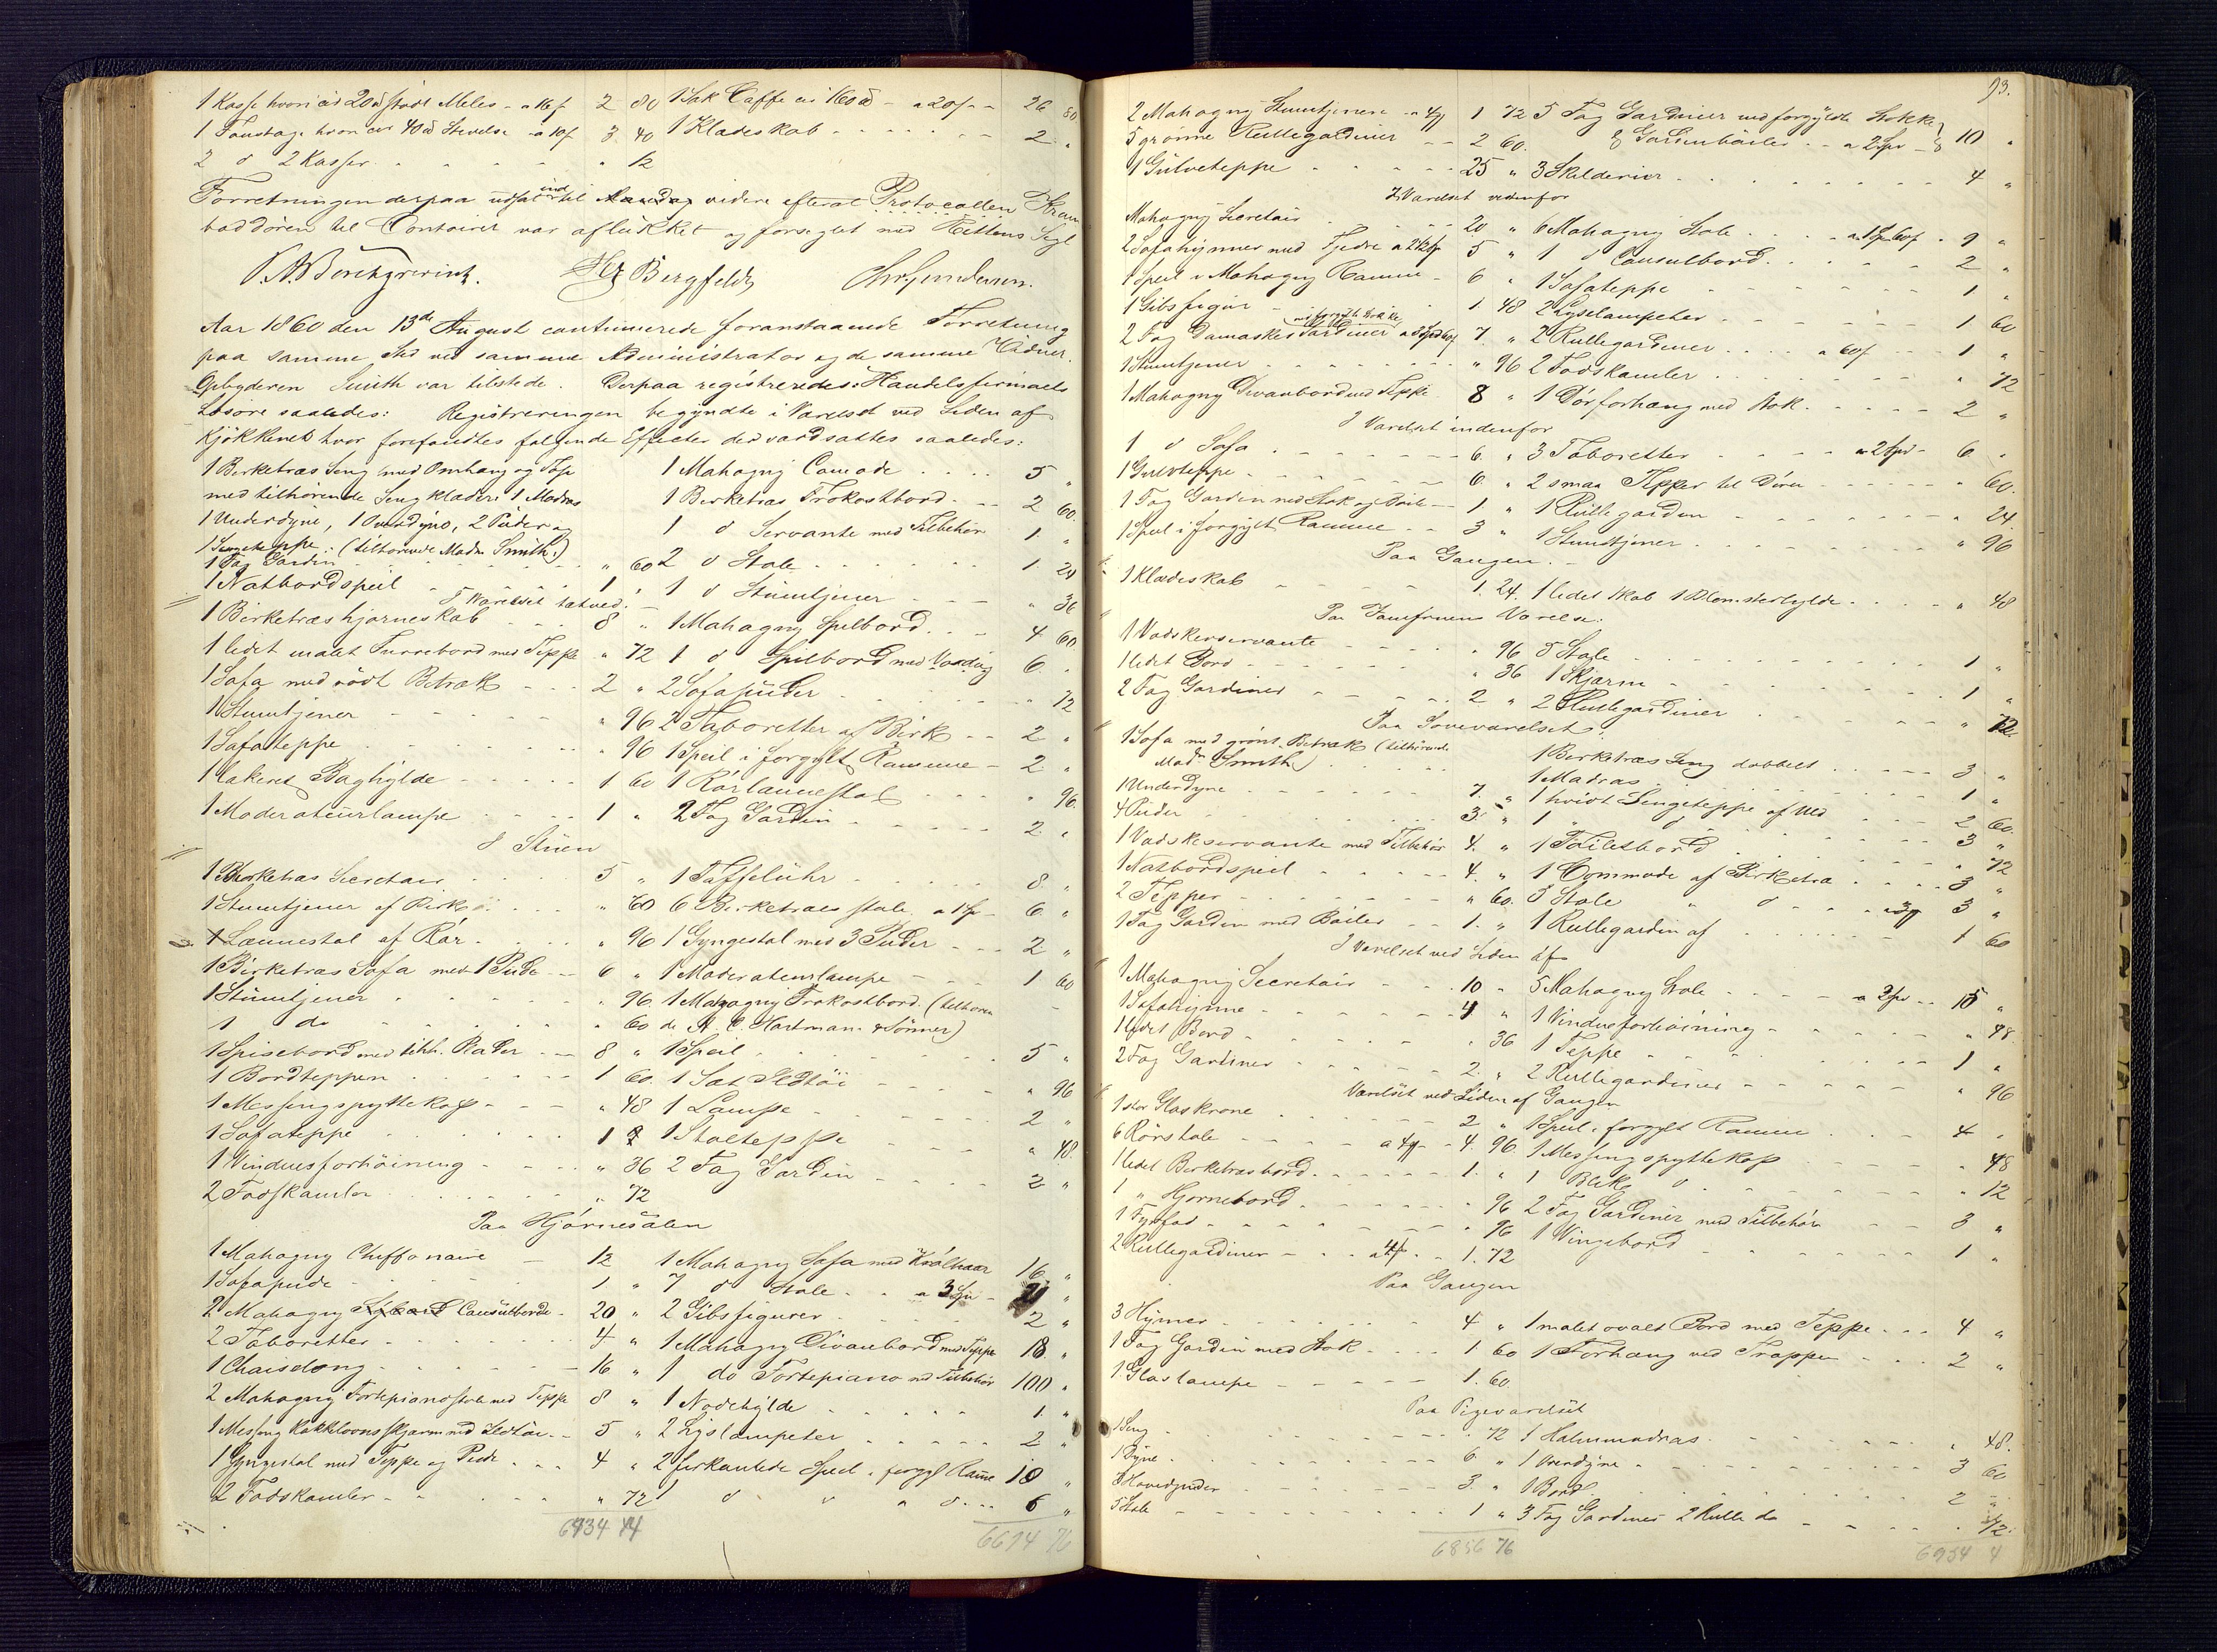 1 Kasse hvori ca 20 ℔ stødt Melis - a 16 s 2 80 1 Sæk Caffe ca 160 ℔ - a 20 s - 26 80
1 Foustage hvori ca 40 ℔ Stivelse a 10 s 3 40 1 Klædeskab 2 "
2 d 2 Kasser " 12
Forretningen derpaa udsat indtil Mandag videre efterat Protocollen Kram
boddøren til Contoiret var aflukket og forseglet med Rettens Segl
P. A. Borchgrevink. Bergfeldt
Aar 1860 den 13de August continuerede foranstaaende Forretning
paa samme Sted ved samme Administrator og de samme Vidner.
Opbyderen Smith var tilstede. Derpaa registreredes Handelsfirmaets
Løsøre saaledes: Registreringen begyndte i Værelset ved Siden af
Kjøkkenet hvor forefandtes følgende Effecter der værdsattes saaledes:
1 Birketræs Seng med Omhang og Top 1 Mahagny Comode 5 "
med tilhørende Sengklæder: 1 Madras 1 Birketræs Frokostbord 2 60.
1 Underdyne, 1 Overdyne, 2 Puder og 1 d Servante med Tilbehør 1 "
1 Sengeteppe: (tilhørende Madm Smith.)
1 Fag Gardin " 60 2 d Stole 1. 24
1 Natbordspeil 1 " 1 d Stumtjener " 36
I Værelset tætved.
1 Birketræs hjørneskab 8 " 1 Mahagny Spilbord 4 60
1 lidet malet Furrebord med Teppe " 72 1 d Spilbord med Voxdug 6 "
1 Sofa med rødt Betræk 2 " 2 Sofapuder " 72
1 Stumtjener " 96 2 Taboretter af Birk 2 "
1 Sofateppe " 96 1 Speil i forgylt Ramme 2 "
1 lakeret Boghylde 1 60 1 Rørlænestol " 96
1 Moderateurlampe 1 " 2 Fag Gardin 2 "
I Stuen
1 Birketræs Secretair 5 " 1 Taffeluhr 8 "
1 Stumtjener af Birk " 60 6 Birketræes stole a 1 Sp 6 "
1 Lænnestol af Rør " 96 1 Gyngestol med 3 Puder 2 "
1 Birketræs Sofa med 1 Pude 6 " 1 Moderateurlampe 1 60
1 Stumtjener " 96. 1 Mahagny Frokostbord. (tilhøren
1 do " 60 de A. C. Hartman & Sønner)
1 Spisebord med tilh. Plader 8 " 1 Speil 5 "
1 Bordteppen 1 60. 1 Sæt Ildtøi " 96
1 Messingspyttekop " 48 1 Lampe 2 "
1 Sofateppe 1 " 1 Stolteppe " 48
1 Vinduesforhøining " 36 2 Fag Gardin 2 "
2 Fodskamler " 72
Paa Hjørnesalen
1 Mahagny Cheffonaire 12 1 Mahagny Sofa med Krølhaar 16 "
1 Sofapude 1 " 7 d Stole a 3 Sp 21 "
2 Mahagny Consulborde 20 " 2 Gibsfigurer 2 "
2 Taboretter 4 " 1 Mahagny Divanbord med Teppe 18 "
1 Chaiselong 16 " 1 do Fortepiano md Tilbehør 100 "
2 Mahagny Fortepianostole med Teppe 8 " 1 Nodehylde 1 "
1 Messing Kakkelovnsskjærm med Ildtøi 5 " 2 Lyslampeter 2 "
1 Gyngestol med Teppe og Pude 4 " 2 firkantede Speil i forgyl Ramme 10 "
2 Fodskamler " 72 1 d " " d 6 "
6434 44 6694 76
93.
2 Mahagny Stumtjenere 1 72 5 Fag Gardiner med forgyldte Stokke
5 grønne Rullegardiner 2 60. & Gardinbøiler a 2 Spd 10 "
1 Gulvteppe 25 " 3 Skilderier 4 "
I Værelset vedenfor
Mahagny Secretair 20 " 6 Mahagny Stole a 1 Sp 60 s 9 "
2 Sofahynner med Fjedre a 2½ Sp 5 " 1 d Consulbord 2 "
1 Speil i Mahagny Ramme 6 " 1 Sofateppe 1 "
1 Gibsfigur 1 48 2 Lyselampeter 1 60
2 Fag Damaskes Gardiner med forgyldte Stokke 7. " 2 Rullegardiner a 60 s 1 "
1 Stumtjener " 96 2 Fodskamler " 72
1 Mahagny Divanbord med Teppe 8 " 1 Dørforhæng med Stok 2 "
I Værelset indenfor
1 d Sofa 6 " 3 Taboretter a 2 Spd 6 "
1 Gulvteppe 6 " 2 smaa Tepper til Døren " 60.
1 Fag Gardin med Stok og Bøile 1 " 1 Rullegardin " 24
1 Speil i forgylt Ramme 3 " 1 Stumtjener " 96
Paa Gangen.
1 Klædeskab 1. 24. 1 lidet Skab 1 Blomsterhylde " 48
Paa Jomfruens Værelse.
1 Vadskerservante " 96 5 Stole 1 "
1 lidet Bord " 36 1 Skjærm 1 "
2 Fag Gardiner 2 " 2 Rullegardiner " 72
Paa Soveværelset.
1 Sofa med grønt Betræk (tilhørende 1 Birketræs Seng dobbelt 3 "
Madm Smith) 1 Madras 1 "
1 Underdyne 7. " 1 hvidt Sengeteppe af Uld 2 60.
4 Puder 3. " 1 " d 3 "
1 Vadskeservante med Tilbehør 4. " 1 Toiletbord " 72
1 Natbordspeil 4. " 1 Commode af Birketræ 3 "
2 Tepper " 60. 3 Stole " d 3 "
1 Fag Gardin med Bøiler 1. " 1 Rullegardin af 1 60
I Værelset ved Siden af
1 Mahagny Secretair 10 " 5 Mahagny Stole a 2 Spd 10 "
1 Sofahynne 4 " 1 Vinduesforhøining " 48
1 lidet Bord " 36 1 Teppe 1 "
2 Fag Gardiner 2. " 2 Rullegardiner " 96
Værelset ved Siden af Gangen
1 stor Glaskrone 2 " 1 Speil i forgylt Ramme 4 "
6 Rørstole 4. 96 1 Messingspyttekop " 48
1 lidet Birketræsbord 1. " 1 Blik d " 12
1 " Hjørnebord " 96 2 Fag Gardiner med Tilbehør 3 "
1 Fyrfad " 96 1 Vingebord 1 "
2 Rullegardiner 1. 72
Paa Gangen
3 Hynner 4 " 1 malet ovalt Bord med Teppe 4 "
1 Fag Gardin med Stok 1 60 1 Forhæng ved Trappen 2 "
1 Glaslampe 1. 60
Paa Pigeværelset
1 Seng " 72 1 Halmmadras " 48.
1 Dyne 6 " 1 Overdyne 3 60
3 Hovedpuder 3. " 1 Bord 2 "
5 Stole 1 " 3 Fag Gardiner 2 Rulle do " 72.
6856 76 6954 4